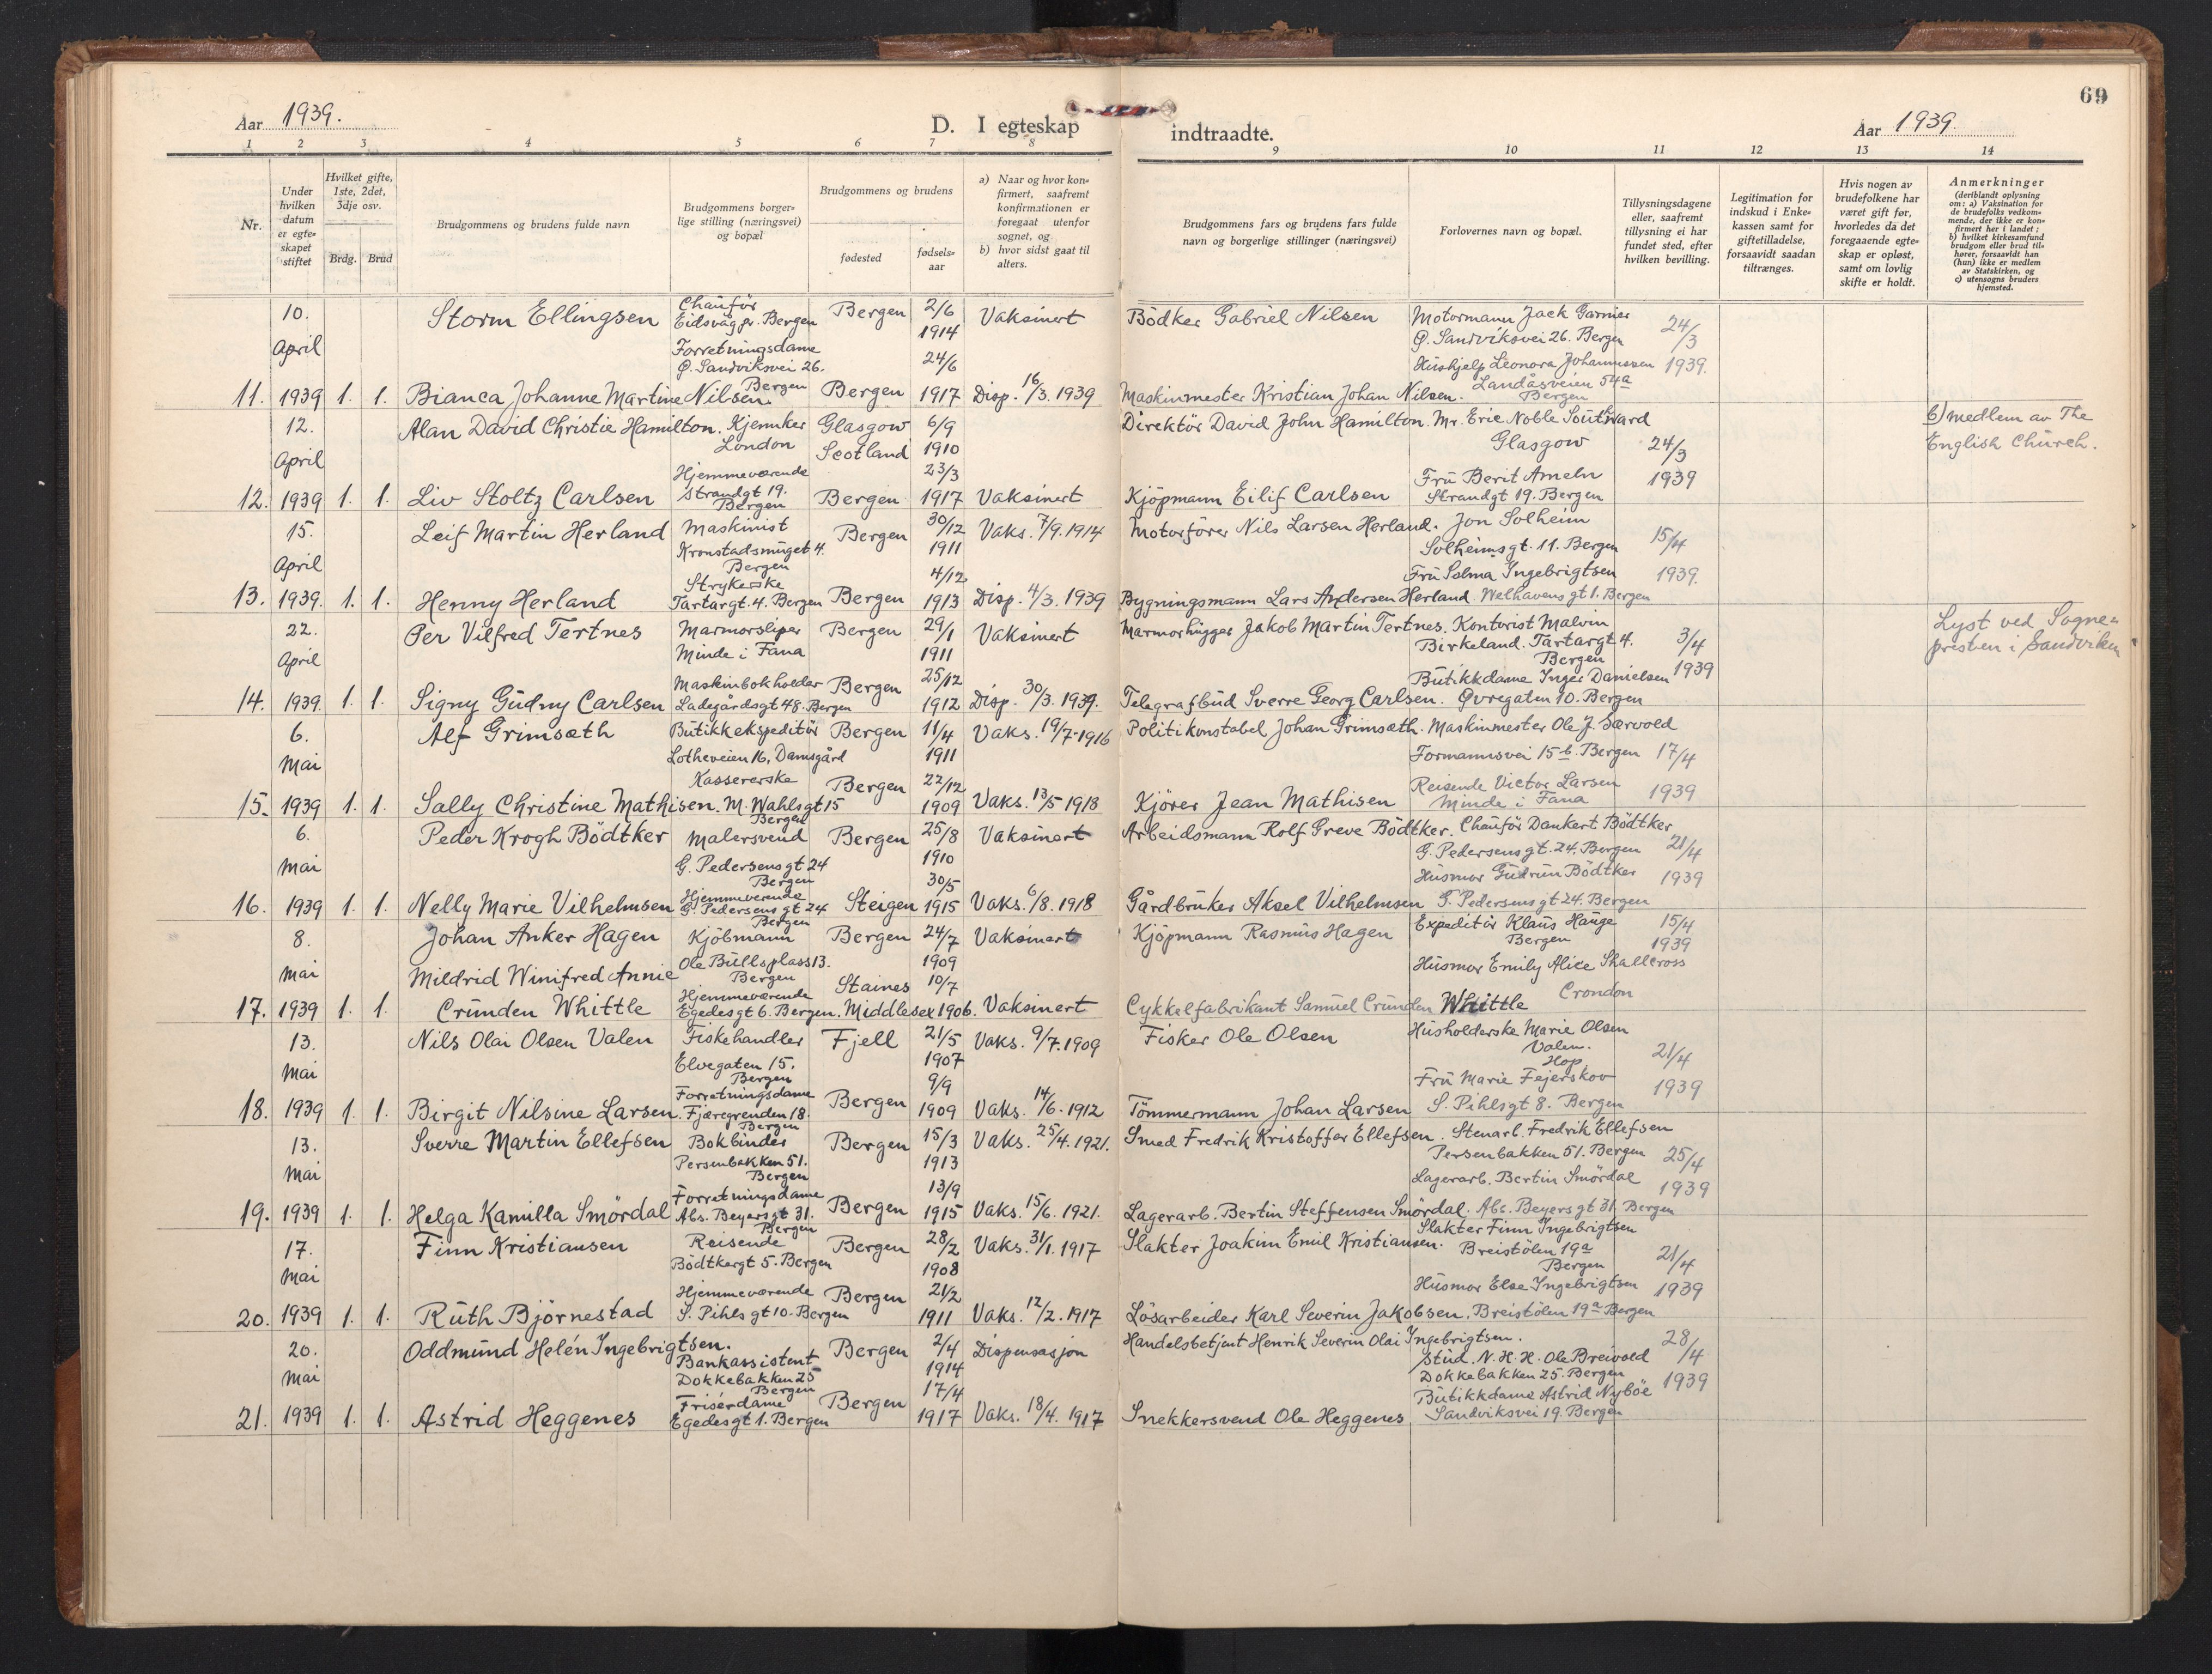 69
Aar 1939.
D. I egteskap indtraadte.
Aar 1939.
1 2 3 4 5 6 7 8 9 10 11 12 13 14
Nr.
Under hvilken datum er egteskapet stiftet
Hvilket gifte, 1ste, 2det, 3dje osv.
Brdg. Brud
Brudgommens og brudens fulde navn
Brudgommens borgerlige stilling (næringsvei) og bopæl
Brudgommens og brudens
fødested
fødselsaar
a) Naar og hvor konfirmert, saafremt konfirmationen er foregaat utenfor sognet, og
b) hvor sidst gaat til alters.
Brudgommens fars og brudens fars fulde navn og borgerlige stillinger (næringsvei)
Forlovernes navn og bopæl.
Tillysningsdagene eller, saafremt tillysning ei har fundet sted, efter hvilken bevilling.
Legitimation for indskud i Enkekassen samt for giftetilladelse, forsaavidt saadan tiltrænges.
Hvis nogen av brudefolkene har været gift før, hvorledes da det foregaaende egteskap er opløst, samt om lovlig skifte er holdt.
Anmerkninger
(deriblandt oplysning om: a) Vaksination for de brudefolks vedkommende, der ikke er konfirmert her i landet; b) hvilket kirkesamfund brudgom eller brud tilhører, forsaavidt han (hun) ikke er medlem av Statskirken, og c) utensogns bruders hjemsted.
11. 10. April 1939 1. 1.
Storm Ellingsen
Chauför Eidsvåg pr. Bergen
Bergen 2/6 1914 Vaksinert
Bödker Gabriel Nilsen
Motormann Jack Garnier
Ø. Sandviksvei 26. Bergen
24/3 1939.
Bianca Johanne Martine Nilsen.
Forretningsdame Ø. Sandviksvei 26. Bergen
Bergen 24/6 1917 Disp. 16/3. 1939
Maskinmester Kristian Johan Nilsen.
Hushjelp Leonora Johannessen
Landåsveien 54a Bergen
12. 12. April 1939 1. 1.
Alan David Christie Hamilton. Kjemiker London
Glasgow Scotland 6/9 1910
Direktör David John Hamilton.
Mr. Eric Noble Southward Glasgow
24/3 1939
b) medlem av The English Church.
Liv Stoltz Carlsen
Hjemmeværende Strandgt 19. Bergen
Bergen 23/3 1917 Vaksinert
Kjöpmann Eilif Carlsen
Fru Berit Ameln
Strandgt 19. Bergen
13. 15. April 1939. 1. 1.
Leif Martin Herland
Maskinist Kronstadsmuget 4. Bergen
Bergen 30/12 1911 Vaks. 7/9. 1914
Motorförer Nils Larsen Herland.
Jon Solheim
Solheimsgt. 11. Bergen
15/4 1939.
Henny Herland
Strykerske Tartargt. 4. Bergen
Bergen 4/12 1913 Disp. 4/3. 1939
Bygningsmann Lars Andersen Herland.
Fru Selma Ingebrigtsen
Welhavens gt 1. Bergen
14. 22. April 1939. 1. 1.
Per Vilfred Tertnes
Marmorsliper Minde i Fana
Bergen 29/1 1911 Vaksinert
Marmorhugger Jakob Martin Tertnes.
Kontorist Malvin Birkeland. Tartargt 4. Bergen
3/4 1939
Lyst ved Sognepresten i Sandviken
Signy Gudny Carlsen
Maskinbokholder Ladegårdsgt 48. Bergen
Bergen 25/12 1912 Disp. 30/3. 1939.
Telegrafbud Sverre Georg Carlsen.
Butikkdame Inger Danielsen
Øvregaten 10. Bergen
15. 6. Mai 1939 1. 1.
Alf Grimsæth
Butikkekspeditör Lotheveien 16, Damsgård
Bergen 11/4 1911 Vaks. 19/7-1916
Politikonstabel Johan Grimsæth.
Maskinmester Ole J. Særvold
Formannsvei 15b. Bergen
17/4 1939
Sally Christine Mathisen.
Kassererske M. Wahlsgt 15 Bergen
Bergen 22/12 1909 Vaks. 13/5 1918
Kjörer Jean Mathisen
Reisende Victor Larsen
Minde i Fana
16. 6. Mai 1939 1. 1.
Peder Krogh Bödtker
Malersvend G. Pedersens gt 24 Bergen
Bergen 25/8 1910 Vaksinert
Arbeidsmann Rolf Greve Bödtker.
Chaufför Dankert Bödtker
G. Pedersens gt. 24. Bergen
21/4 1939
Nelly Marie Vilhelmsen
Hjemmeværende G. Pedersens gt 24 Bergen
Steigen 30/5 1915 Vaks. 6/8. 1918
Gårdbruker Aksel Vilhelmsen
Husmor Gudrun Bödtker
G. Pedersens gt 24. Bergen
17. 8. Mai 1939 1. 1.
Johan Anker Hagen
Kjöbmann Ole Bullsplass 13. Bergen
Bergen 24/7 1909 Vaksinert
Kjöpmann Rasmus Hagen
Expeditör Klaus Hauge
Bergen
15/4 1939
Mildrid Winifred Annie Crunden Whittle
Hjemmeværende Egedesgt 6. Bergen.
Staines Middlesex 10/7 1906. Vaksinert
Cykkelfabrikant Samuel Crunden Whittle
Husmor Emily Alice Shallcross
Crondon
18. 13. Mai 1939 1. 1.
Nils Olai Olsen Valen
Fiskehandler Elvegaten 15. Bergen
Fjell 21/5 1907 Vaks. 9/7. 1909
Fisker Ole Olsen
Husholderske Marie Olsen Valen.
Hop
21/4 1939
Birgit Nilsine Larsen.
Forretningsdame Fjæregrenden 18. Bergen
Bergen 9/9 1909 Vaks. 14/6. 1912
Tömmermann Johan Larsen
Fru Marie Fejerskov
S. Pihlsgt 8. Bergen
19. 13. Mai 1939 1. 1.
Sverre Martin Ellefsen
Bokbinder Persenbakken 51. Bergen
Bergen 15/3 1913 Vaks. 25/4. 1921.
Smed Fredrik Kristoffer Ellefsen.
Stenarb. Fredrik Ellefsen
Persenbakken 51. Bergen
25/4 1939
Helga Kamilla Smördal
Forretningsdame Abs. Beyers gt 31. Bergen
Bergen 13/9 1915 Vaks. 15/6. 1921.
Lagerarb. Bertin Steffensen Smördal.
Lagerarb. Bertin Smördal
Abs. Beyers gt 31. Bergen
20. 17. Mai 1939 1. 1.
Finn Kristiansen
Reisende Bödtkergt 5. Bergen
Bergen 28/2 1908 Vaks. 31/1. 1917
Slakter Joakim Emil Kristiansen.
Slakter Finn Ingebrigtsen
Breistölen 19a Bergen
21/4 1939
Ruth Björnestad
Hjemmeværende S. Pihls gt 10. Bergen
Bergen 21/2 1911 Vaks. 12/2. 1917
Lösarbeider Karl Severin Jakobsen.
Husmor Else Ingebrigtsen
Breistölen 19a Bergen
21. 20. Mai 1939 1. 1.
Oddmund Helén Ingebrigtsen.
Bankassistent Dokkebakken 25 Bergen
Bergen 2/4 1914 Dispensasjon
Handelsbetjent Henrik Severin Olai Ingebrigtsen.
Stud. N. H. H. Ole Breivold
Dokkebakken 25. Bergen
28/4 1939
Astrid Heggenes
Frisérdame Egedesgt 1. Bergen
Bergen 17/4 1917 Vaks. 18/4. 1917
Snekkersvend Ole Heggenes
Butikkdame Astrid Nyböe
Sandviksvei 19. Bergen